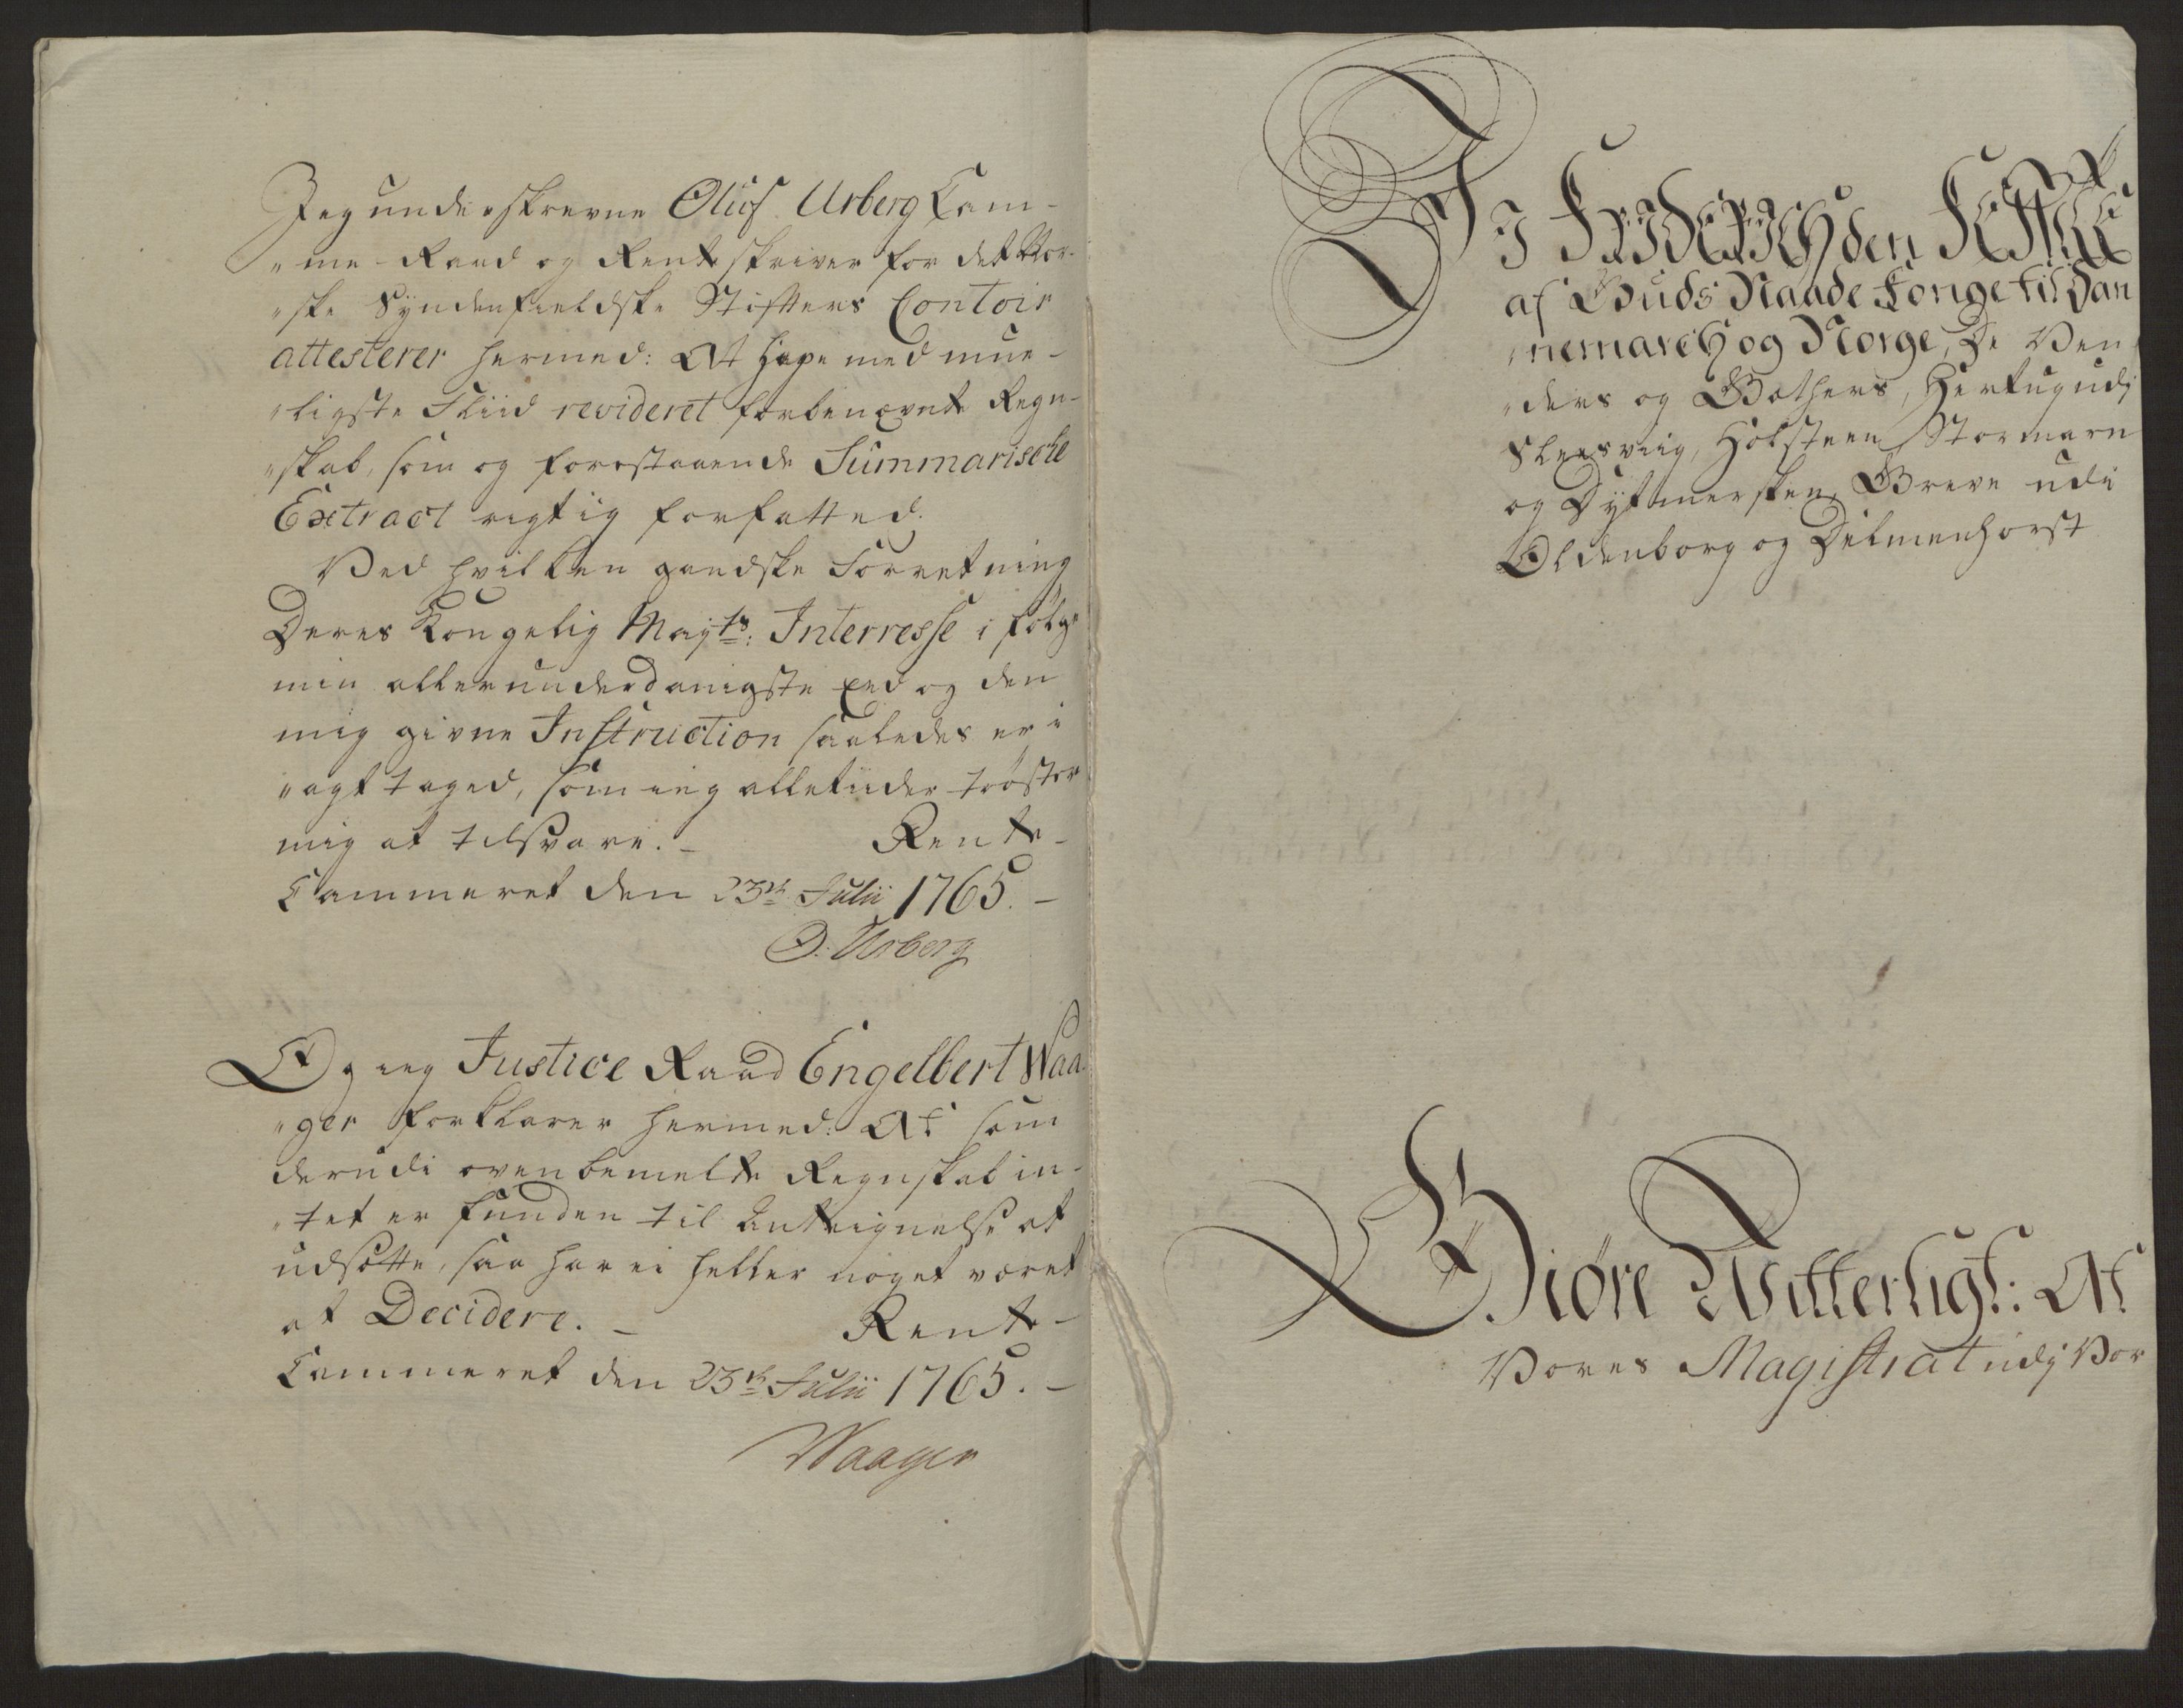 Jeg underskrevne Oluf Urberg Cam-
"me-Raad og Renteskriver for det Nor-
"ske Syndenfieldske Stifters Contoir
attesterer hermed: At have med mue-
"ligste Fliid revideret forbenævnte Regn-
"skab, som og forestaaende Summarische
Extract rigtig forfatted.
Ved hvilken gandske Forretning
Deres Kongelig Mayts: Interresse i følge
min allerunderdanigste Eed og den
mig givne Instruction saaledes er i
"agt taged, som ieg alletiider trøster
mig at tilsvare. – Rente-
Cammeret den 23de Julii 1765. –
O. Urberg
Og ieg Justice Raad Engelbert Waa-
"ger forklarer hermed: At som
derudi ovenbemelte Regnskab in-
"tet er funden til Anteignelse at
udsætte, saa har ei heller noget været
at Decidere. – Rente-
Cammeret den 23de Julii 1765. –
Waager
Vi Friderich den Femte
af Guds Naade Konge til Dan
"nemarch og Norge, De Ven
"ders og Gothers, Hertug udj
Sleesviig, Holsteen, Stormarn
og Dytmersken, Greve udi
Oldenborg og Delmenhorst
Giøre Witterligt: At
Vores Magistrat udj Vor